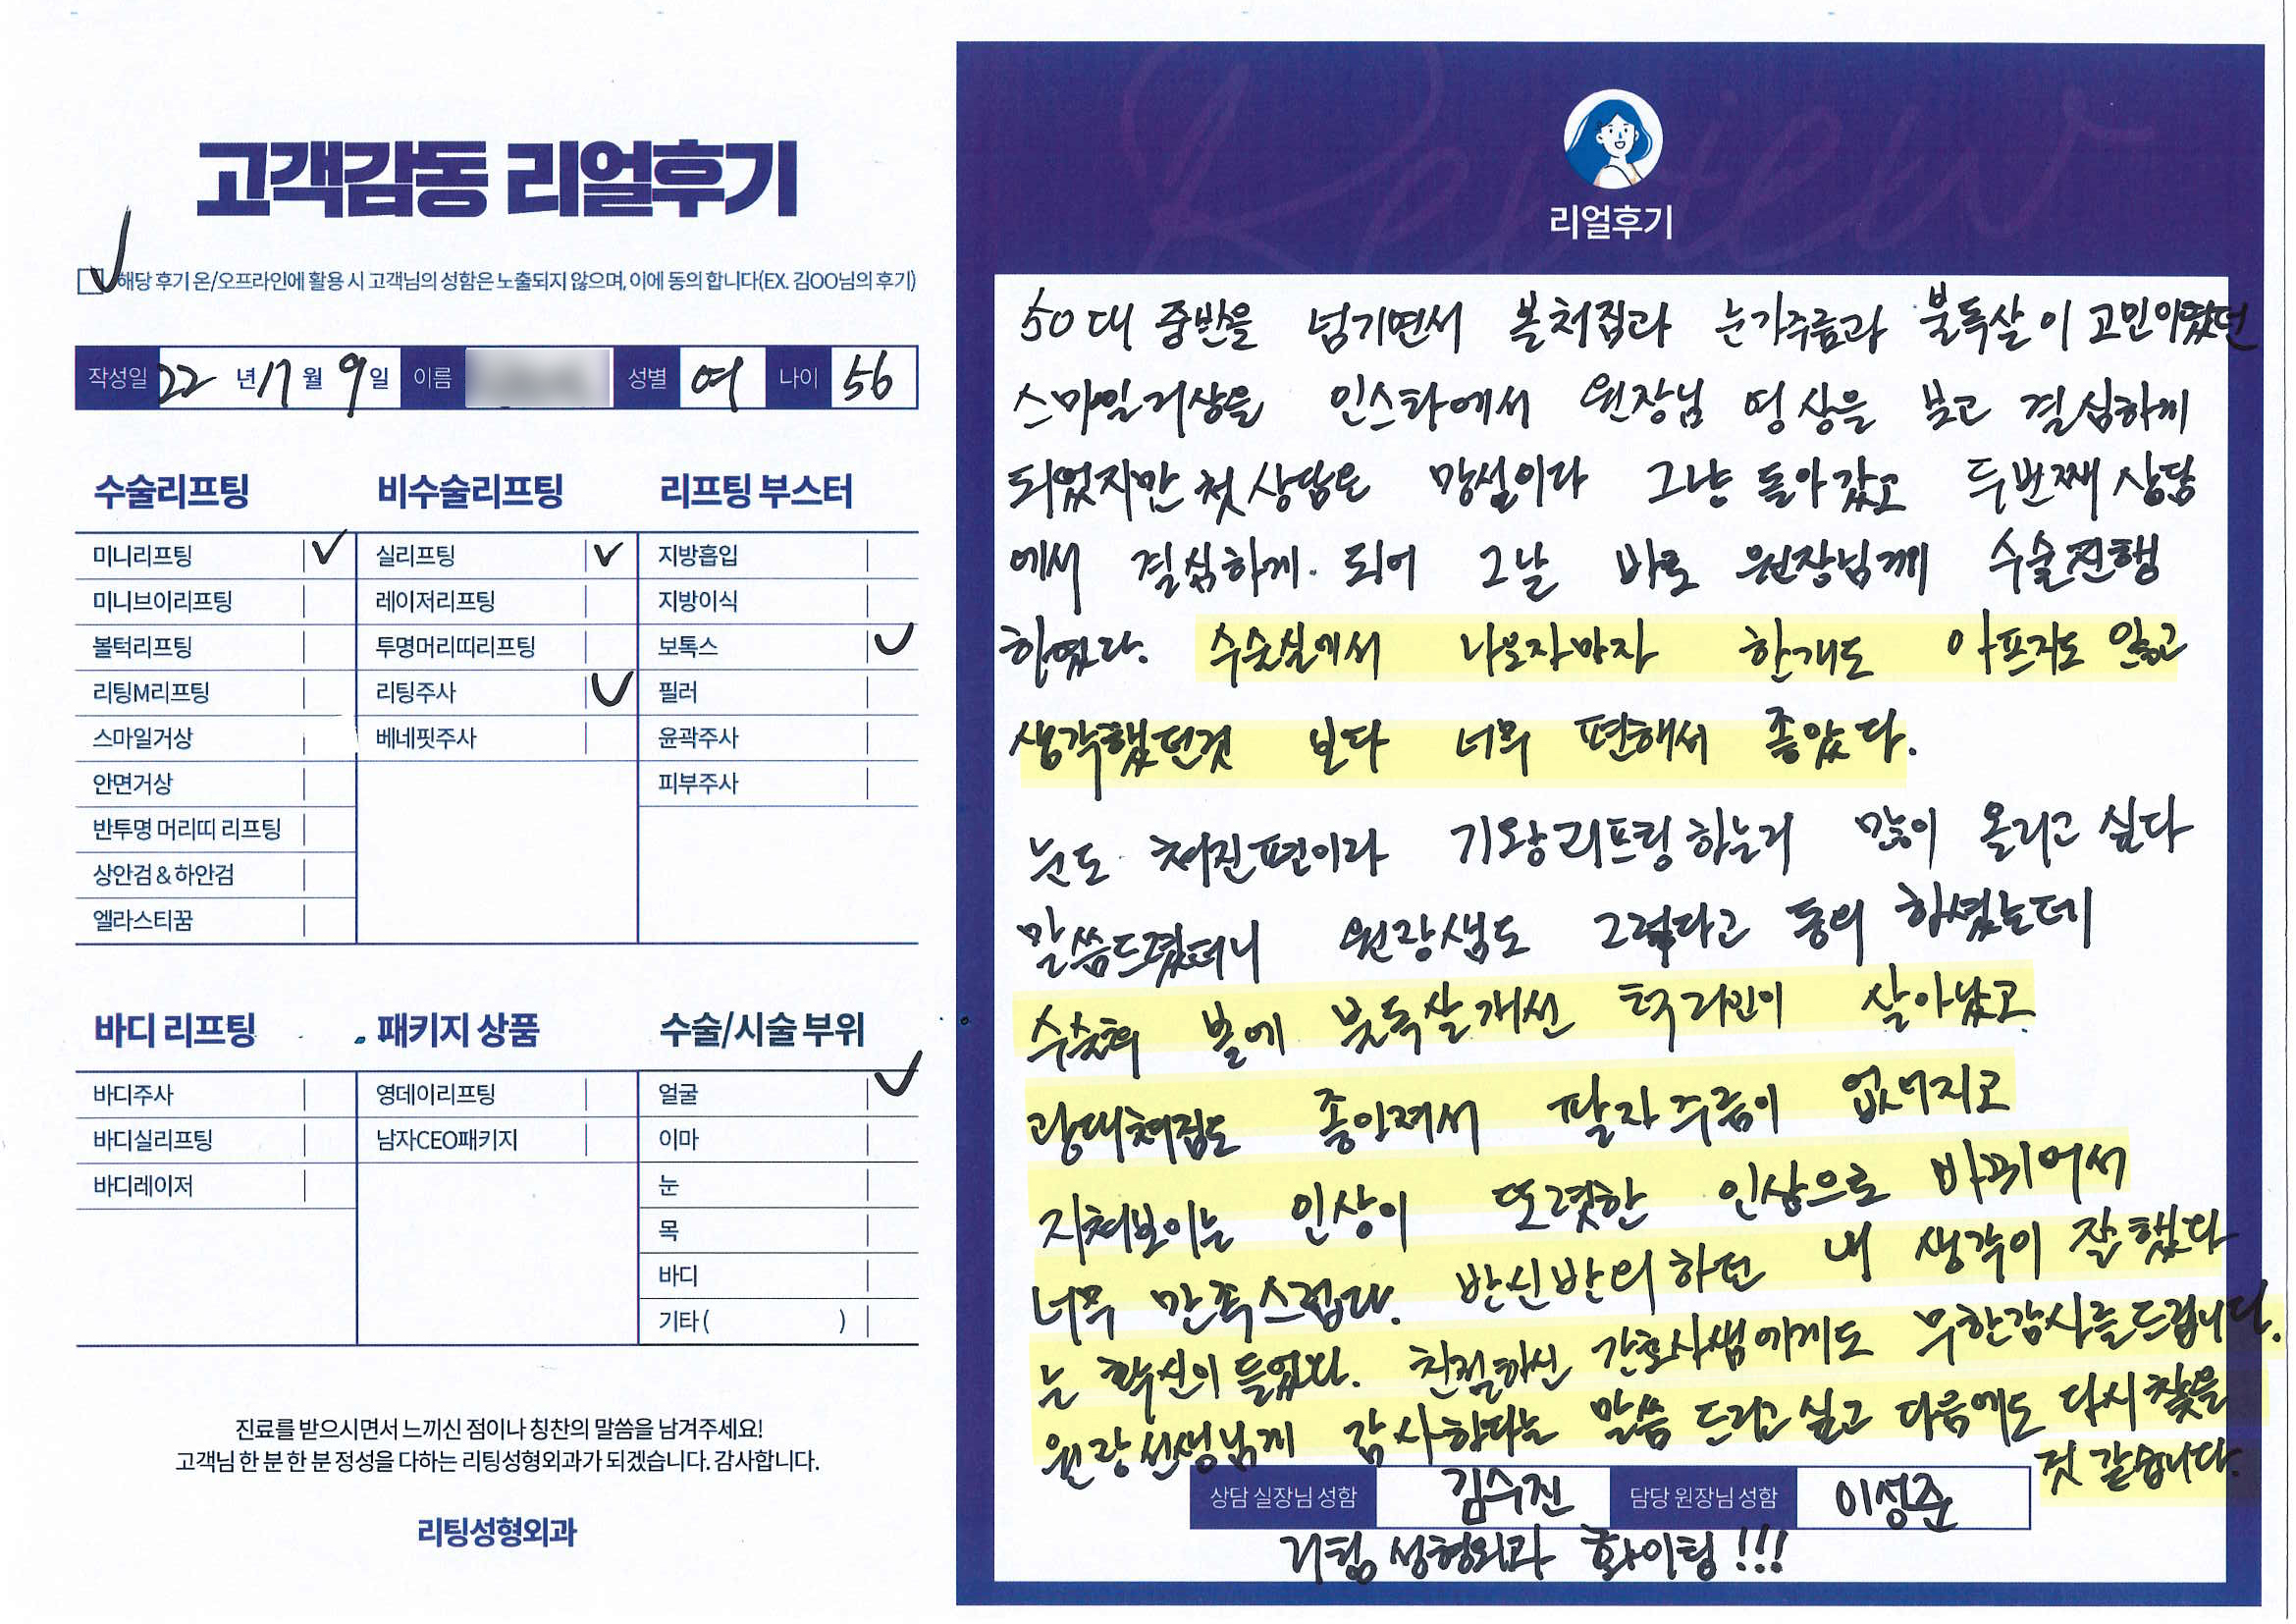 고객감동 리얼후기
해당 후기 온/오프라인에 활용 시 고객님의 성함은 노출되지 않으며, 이에 동의 합니다(EX. 김OO님의 후기)
작성일 22 년 11 월 9 일 이름 성별 여 나이 56
수술리프팅
미니리프팅
미니브이리프팅
볼턱리프팅
리팅M리프팅
스마일거상
안면거상
반투명 머리띠 리프팅
상안검 & 하안검
엘라스티꿈
비수술리프팅
실리프팅
레이저리프팅
투명머리띠리프팅
리팅주사
베네핏주사
리프팅 부스터
지방흡입
지방이식
보톡스
필러
윤곽주사
피부주사
바디 리프팅
바디주사
바디실리프팅
바디레이저
패키지 상품
영데이리프팅
남자CEO패키지
수술/시술 부위
얼굴
이마
눈
목
바디
기타 ( )
진료를 받으시면서 느끼신 점이나 칭찬의 말씀을 남겨주세요!
고객님 한 분 한 분 정성을 다하는 리팅성형외과가 되겠습니다. 감사합니다.
리팅성형외과
Review
리얼후기
50대 중반을 넘기면서 볼처짐과 눈가주름과 불독살이 고민이었던
스마일거상을 인스타에서 원장님 영상을 보고 결심하게
되었지만 첫상담은 망설이다 그냥 돌아갔고 두번째 상담
에서 결심하게 되어 그날 바로 원장님께 수술진행
하였다. 수술실에서 나오자마자 한개도 아프지도 않고
생각했던것 보다 너무 편해서 좋았다.
눈도 쳐진편이라 기왕 리프팅하는거 많이 올리고 싶다
말씀드렸더니 원장샘도 그렇다고 동의 하셨는데
수술후 볼에 붓독살개선 턱라인이 살아났고
광대쳐짐도 좋아져서 팔자주름이 없어지고
지쳐보이는 인상이 또렷한 인상으로 바뀌어서
너무 만족스럽다. 반신반의하던 내 생각이 잘했다
는 확신이 들었다. 친절하신 간호사샘에게도 무한감사를드립니다.
원장선생님께 감사하다는 말씀 드리고 싶고 다음에도 다시 찾을
것 같습니다.
상담 실장님 성함 김수진 담당 원장님 성함 이성준
리팅 성형외과 화이팅!!!